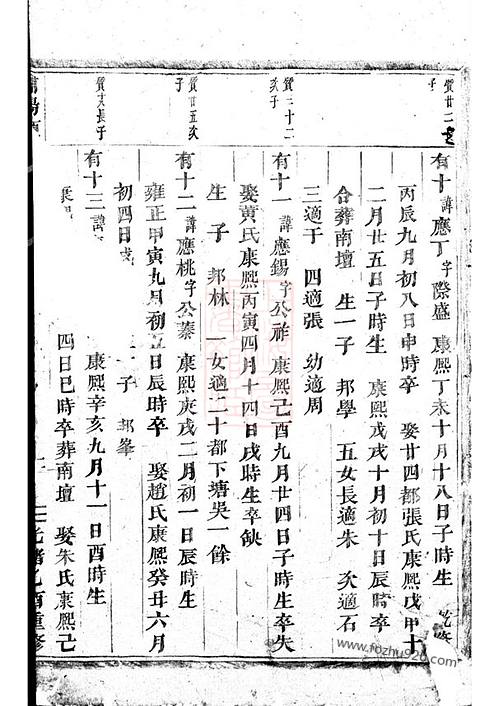 質廿二長子
有十 諱應丁字際盛 康熙丁未十月十八日子時生
丙辰九月初八日申時卒 娶廿四都張氏康熙戊申十
二月廿五日子時生 康熙戊戌十月初十日辰時卒
合葬南壇 生一子 邦學 五女長適朱 次適石
三適于 四適張 幼適周
質二十二次子
有十一 諱應錫字公祚 康熙己酉九月廿四日子時生卒失
娶黃氏康熙丙寅四月十四日戌時生卒缺
生一子 邦林 一女適二十都下塘吳一餘
質廿五次子
有十二 諱應桃字公蓁 康熙庚戌二月初一日辰時生
雍正甲寅九月初五日辰時卒 娶趙氏康熙癸丑六月
初四日 一子 邦峯
質 長子
有十三 諱 康熙辛亥九月十一日酉時生
四日巳時卒葬南壇 娶朱氏康熙己
乙酉重修
www.fozhu920.com